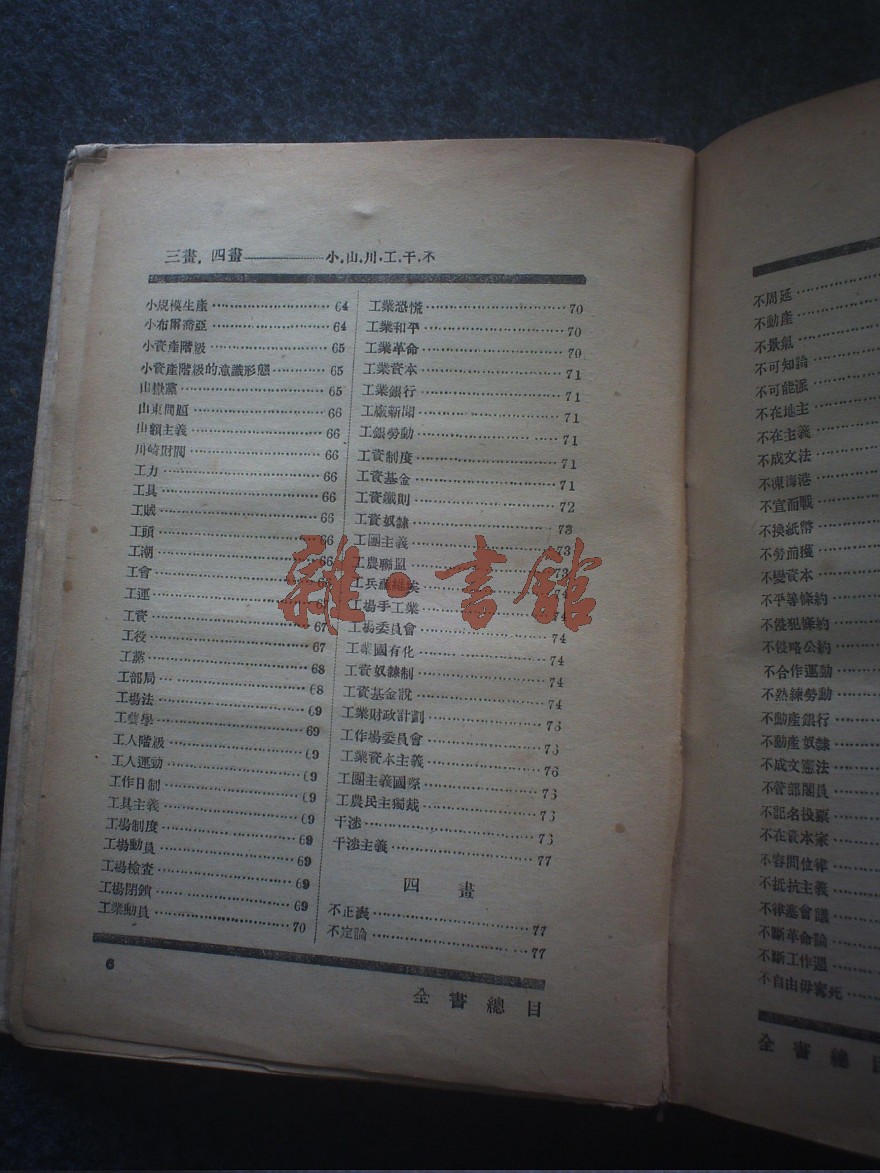 三畫，四畫————小，山，川，工，干，不
小規模生產 64
小布爾喬亞 64
小資產階級 65
小資產階級的意識形態 65
山嶽黨 65
山東問題 66
山額主義 66
川崎財閥 66
工力 66
工具 66
工賊 66
工頭 66
工潮 66
工會
工運
工資 67
工役 67
工黨 68
工部局 68
工場法 69
工藝學 69
工人階級 69
工人運動 69
工作日制 69
工具主義 69
工場制度 69
工場動員 69
工場檢查 69
工場閉鎖 69
工業動員 70
工業恐慌 70
工業和平 70
工業革命 70
工業資本 71
工業銀行 71
工廠新聞 71
工銀勞動 71
工資制度 71
工資基金 71
工資鐵則 72
工資奴隸 73
工團主義 73
工農聯盟 73
工兵蘇維埃 74
工場手工業 74
工場委員會 74
工業國有化 74
工資奴隸制 74
工資基金說 74
工業財政計劃 76
工作場委員會 76
工業資本主義 76
工團主義國際 76
工農民主獨裁 76
干涉 76
干涉主義 77
四畫
不正表 77
不定論 77
6
全書總目
不周延
不動產
不景氣
不可知論
不可能派
不在地主
不在主義
不成文法
不凍海港
不宣而戰
不換紙幣
不勞而獲
不變資本
不平等條約
不侵犯條約
不侵略公約
不合作運動
不熟練勞動
不動產銀行
不動產奴隸
不成文憲法
不管部閣員
不記名投票
不在資本家
不容間位律
不抵抗主義
不律塞會議
不斷革命論
不斷工作週
不自由毋寧死
全書總目
雜·書館